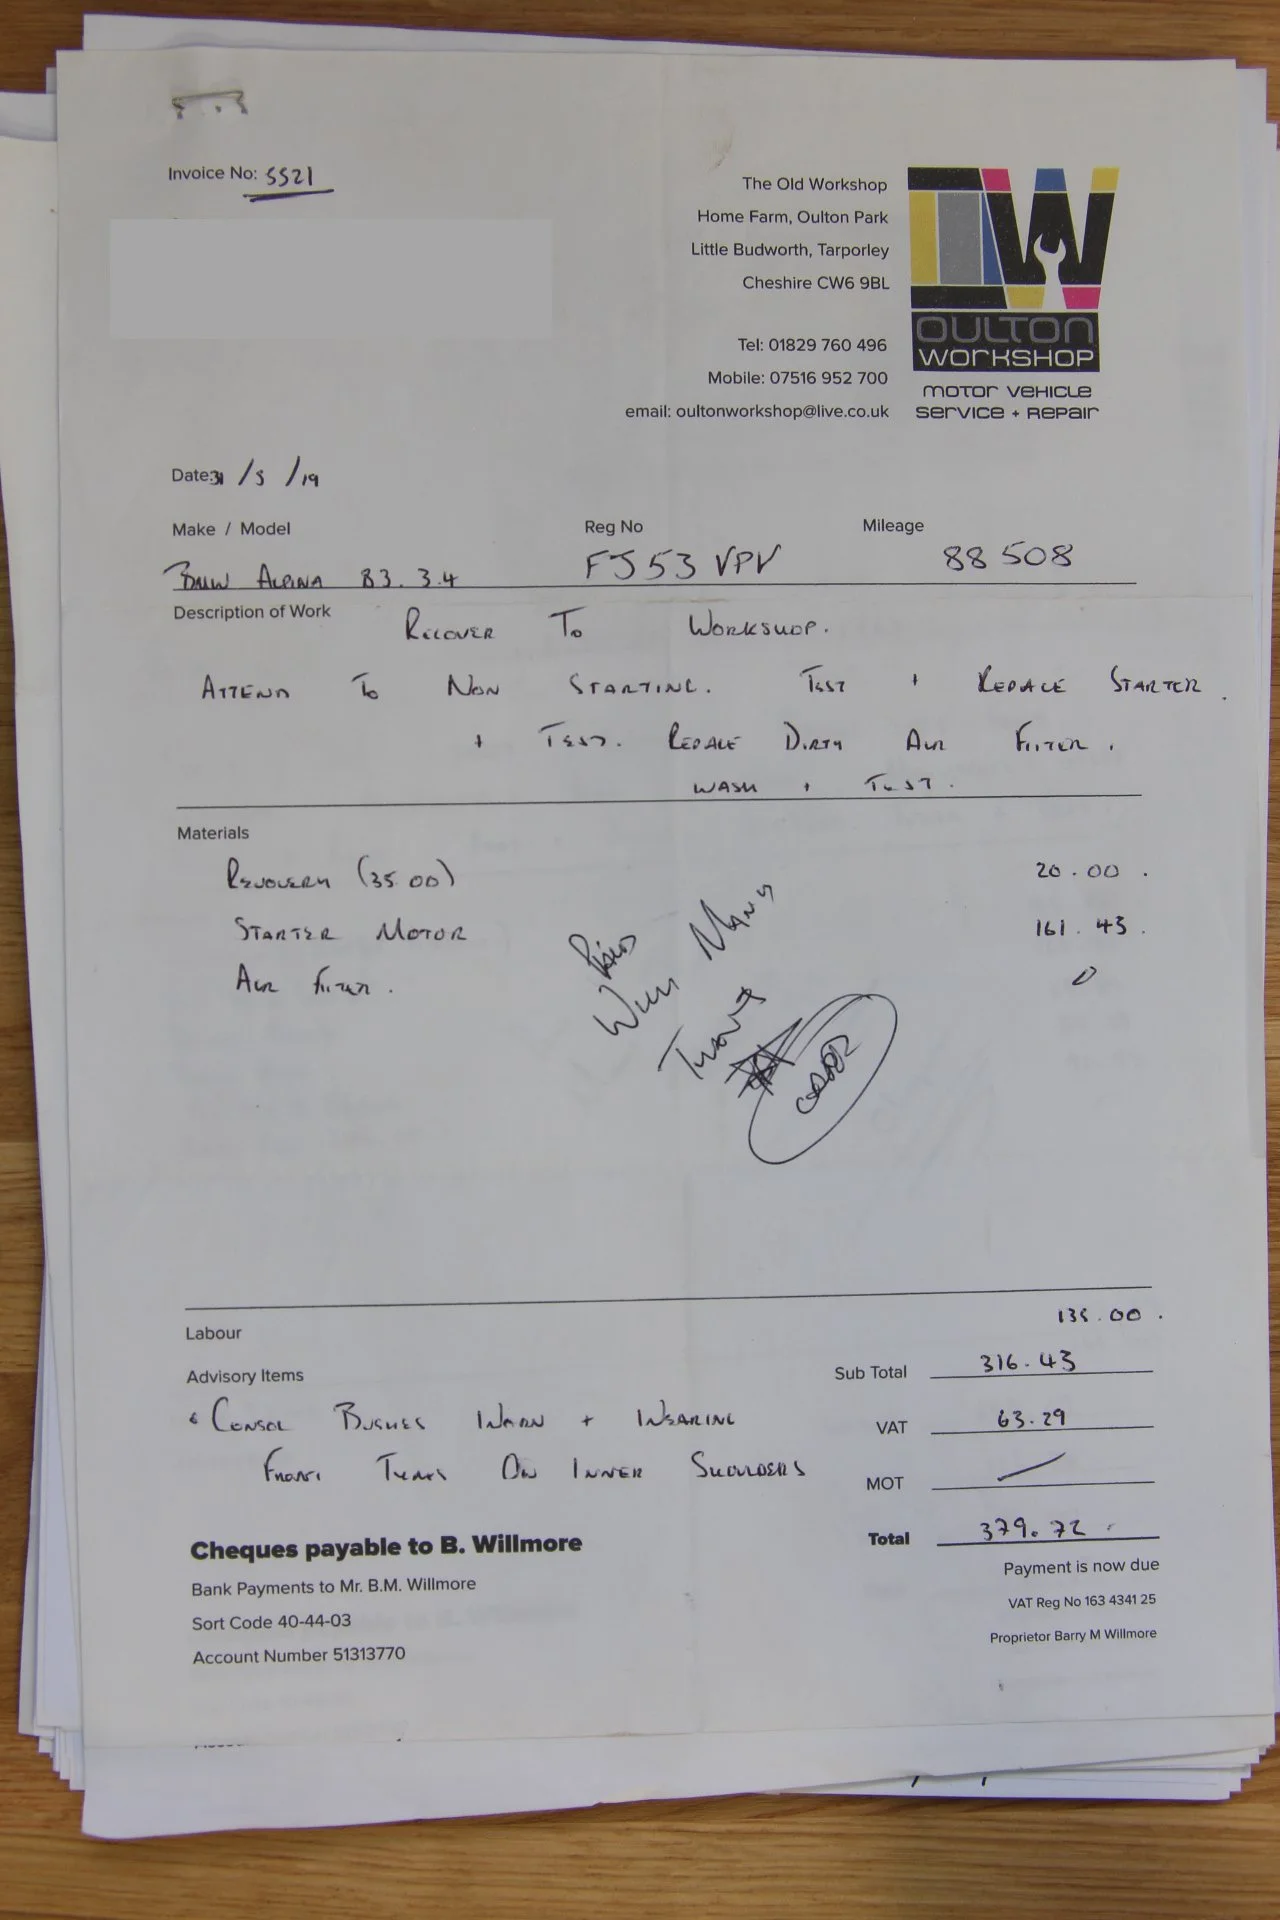 Invoice No: 5521
The Old Workshop
Home Farm, Oulton Park
Little Budworth, Tarporley
Cheshire CW6 9BL
Tel: 01829 760 496
Mobile: 07516 952 700
email: oultonworkshop@live.co.uk
OULTON
WORKSHOP
MOTOR VEHICLE
SERVICE + REPAIR
Date: 31/5/19
Make / Model Reg No Mileage
BMW ALPINA B3. 3.4 FJ53 VPV 88508
Description of Work RECOVER TO WORKSHOP.
ATTEND TO NON STARTING. TEST + REPALE STARTER.
+ TEST. REPALE DIRTY AIR FILTER.
WASH + TEST.
Materials
RECOVERY (35.00) 20.00.
STARTER MOTOR 161.43.
AIR FILTER. 0
PAID
WITH MANY
THANKS
Labour 135.00.
Advisory Items
CONSOL BUSHES WORN + WEARING
FRONT TYRES ON INNER SHOULDERS
Sub Total 316.43
VAT 63.29
MOT
Total 379.72
Cheques payable to B. Willmore
Bank Payments to Mr. B.M. Willmore
Sort Code 40-44-03
Account Number 51313770
Payment is now due
VAT Reg No 163 4341 25
Proprietor Barry M Willmore